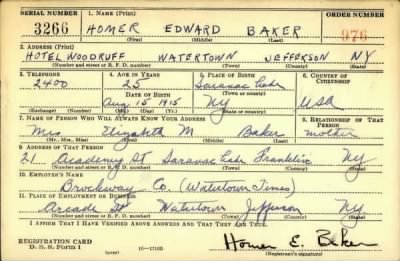 SERIAL NUMBER 1. NAME (Print) ORDER NUMBER
3266 HOMER EDWARD BAKER 976
(First) (Middle) (Last)
2. ADDRESS (Print)
HOTEL WOODRUFF WATERTOWN JEFFERSON NY
(Number and street or R. F. D. number) (Town) (County) (State)
3. TELEPHONE 4. AGE IN YEARS 5. PLACE OF BIRTH 6. COUNTRY OF CITIZENSHIP
2400 25 Saranac Lake
DATE OF BIRTH (Town or county)
Aug 15 1915 NY USA
(Exchange) (Number) (Mo.) (Day) (Yr.) (State or country)
7. NAME OF PERSON WHO WILL ALWAYS KNOW YOUR ADDRESS 8. RELATIONSHIP OF THAT PERSON
Mrs Elizabeth M Baker mother
(Mr., Mrs., Miss) (First) (Middle) (Last)
9. ADDRESS OF THAT PERSON
21 Academy St Saranac Lake Franklin NY
(Number and street or R. F. D. number) (Town) (County) (State)
10. EMPLOYER'S NAME
Brockway Co. (Watertown Times)
11. PLACE OF EMPLOYMENT OR BUSINESS
Arcade St Watertown Jefferson NY
(Number and street or R. F. D. number) (Town) (County) (State)
I AFFIRM THAT I HAVE VERIFIED ABOVE ANSWERS AND THAT THEY ARE TRUE.
REGISTRATION CARD
D. S. S. Form 1 16-17105 Homer E. Baker
(Registrant's signature)